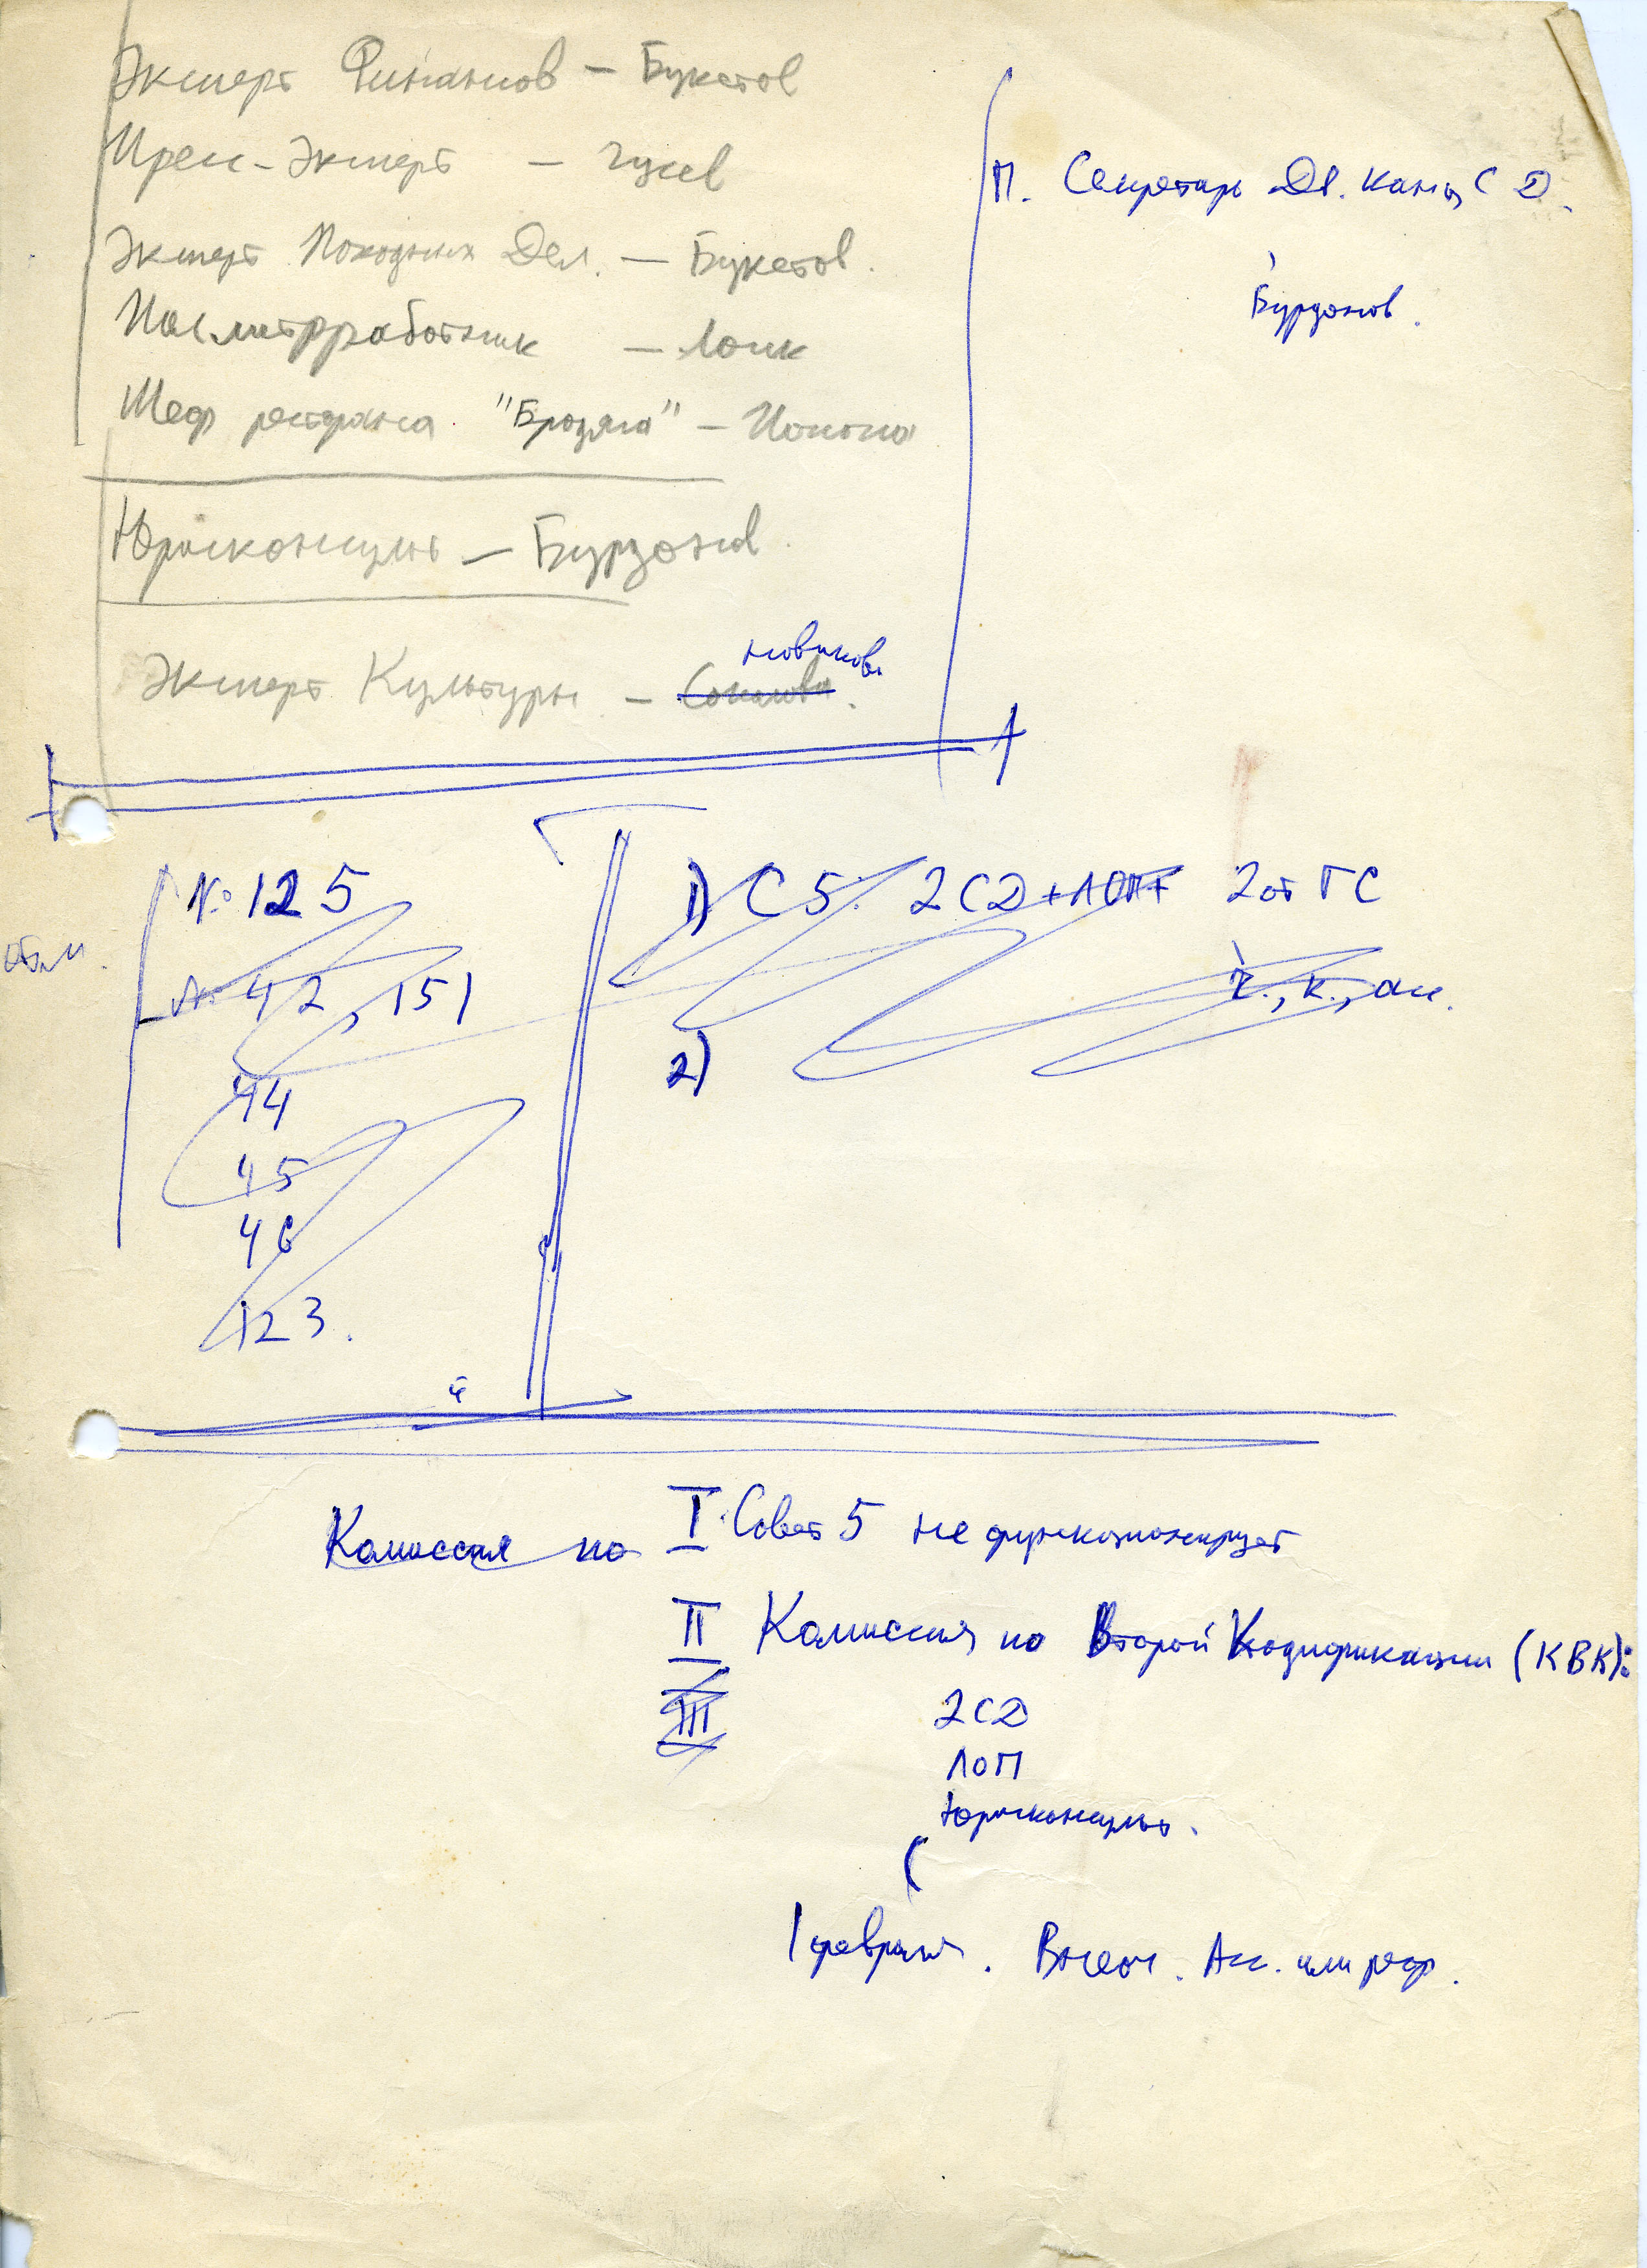 Эксперт Финансов – Букетов
Пресс-Эксперт – Гусев
Эксперт Походных Дел. – Букетов.
– Лоик
Шеф ресторана "Бродяга" –
Юрисконсульт – Бурдонов.
Новикова
Эксперт Культуры – Соколова.
П. Секретарь Дв. Канц С Д.
Бурдонов.
отм.
№ 125
№ 42, 151
44
45
46
123.
1) С 5: 2 СД + ЛОП + 2 от ГС
к., ас.
2)
Комиссия по
I. Совет 5 не функционирует
II Комиссия по Второй Кодификации (КВК):
III
2 СД
ЛОП
Юрисконсульт.
1 февраля. Внеоч. Асс. или реф.